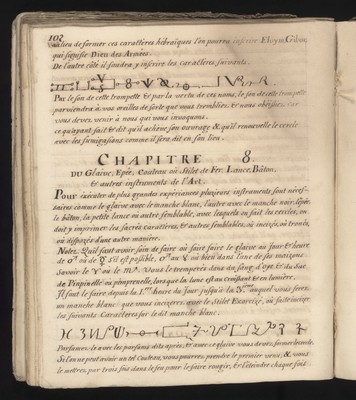 102
au lieu de former ces caractères hébraiques l'on pourra inscrire Eloy ou Gibon
qui signifie Dieu des Armées.
De l'autre côté il faudra y inscrire les caractères suivants.
Par le son de cette trompette & par la vertu de ces noms, le son de cette trompette
parviendra à vos oreilles de sorte que vous trembliez & nous obéissiez car
vous devez venir à nous qui vous invoquons.
ce qu'ayant fait & dit qu'il achève son ouvrage & qu'il renouvelle le cercle
avec les fumigations comme il sera dit en son lieu.
CHAPITRE 8.
DU Glaive, Epée, Couteau ou Stilet de Fer. Lance, Bâton,
& autres instruments de l'Art.
POUR exécuter de plus grandes expériences plusieurs instruments sont néces-
saires comme le glaive avec le manche blanc, l'autre avec le manche noir, l'épée
le bâton, la petite lance ou autre semblable, avec lesquels on fait les cercles, on
doit y imprimer les sacrés caractères, & autres semblables, ou incrizés, où trouvés,
où disposés d'une autre manière.
Notez. Qu'il faut avoir soin de faire ou faire faire le glaive au jour & heure
de ♂ ou de ☿ s'il est possible, ♂ au ♈ ou bien dans l'une de ses maizons
Savoir le ♈ ou le ♏. Vous le tremperez dans du sang d'oye, & du Suc
de Pimpinelle ou pimprenelle, lors que la lune est au croissant & en lumière.
Il faut le faire depuis la 1.ère heure du jour jusqu'à la 3.e auquel vous ferez
un manche blanc que vous incizerez avec le Stilet Exorcizé, où faite incizer
les suivants Caractères sur le dit manche blanc.
Parfumez-le avec les parfums dits après, & avec ce glaive vous devez former le cercle
Si l'on ne peut avoir un tel Couteau, vous pourrez prendre le premier venu, & vous
le mettrez par trois fois dans le feu pour le faire rougir, & l'éteindre chaque fois